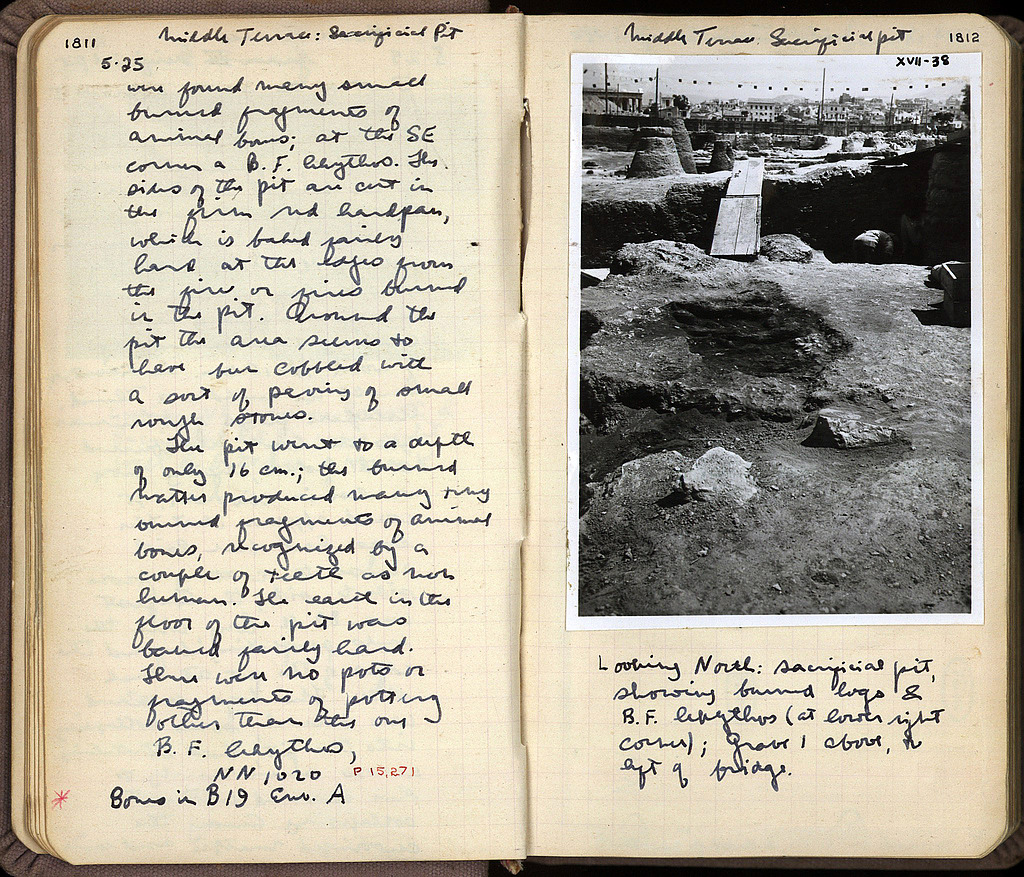 1811
Middle Terrace: Sacrificial Pit
5-25
were found many small
burned fragments of
animal bones; at the SE
corner a B.F. lekythos. The
sides of the pit are cut in
the firm red hardpan,
which is baked fairly
hard at the edges from
the fire or fires burned
in the pit. Around the
pit the area seems to
have been cobbled with
a sort of paving of small
rough stones.
The pit went to a depth
of only 16 cm.; the burned
matter produced many tiny
burned fragments of animal
bones, recognized by a
couple of teeth as non
human. The earth in the
floor of the pit was
baked fairly hard.
There were no pots or
fragments of pottery
other than the one
B.F. lekythos,
NN 1020 P 15,271
Bones in B19 Env. A
Middle Terrace: Sacrificial pit
1812
XVII-38
Looking North: sacrificial pit,
showing burned logs &
B.F. lekythos (at lower right
corner); Grave 1 above, to
left of bridge.